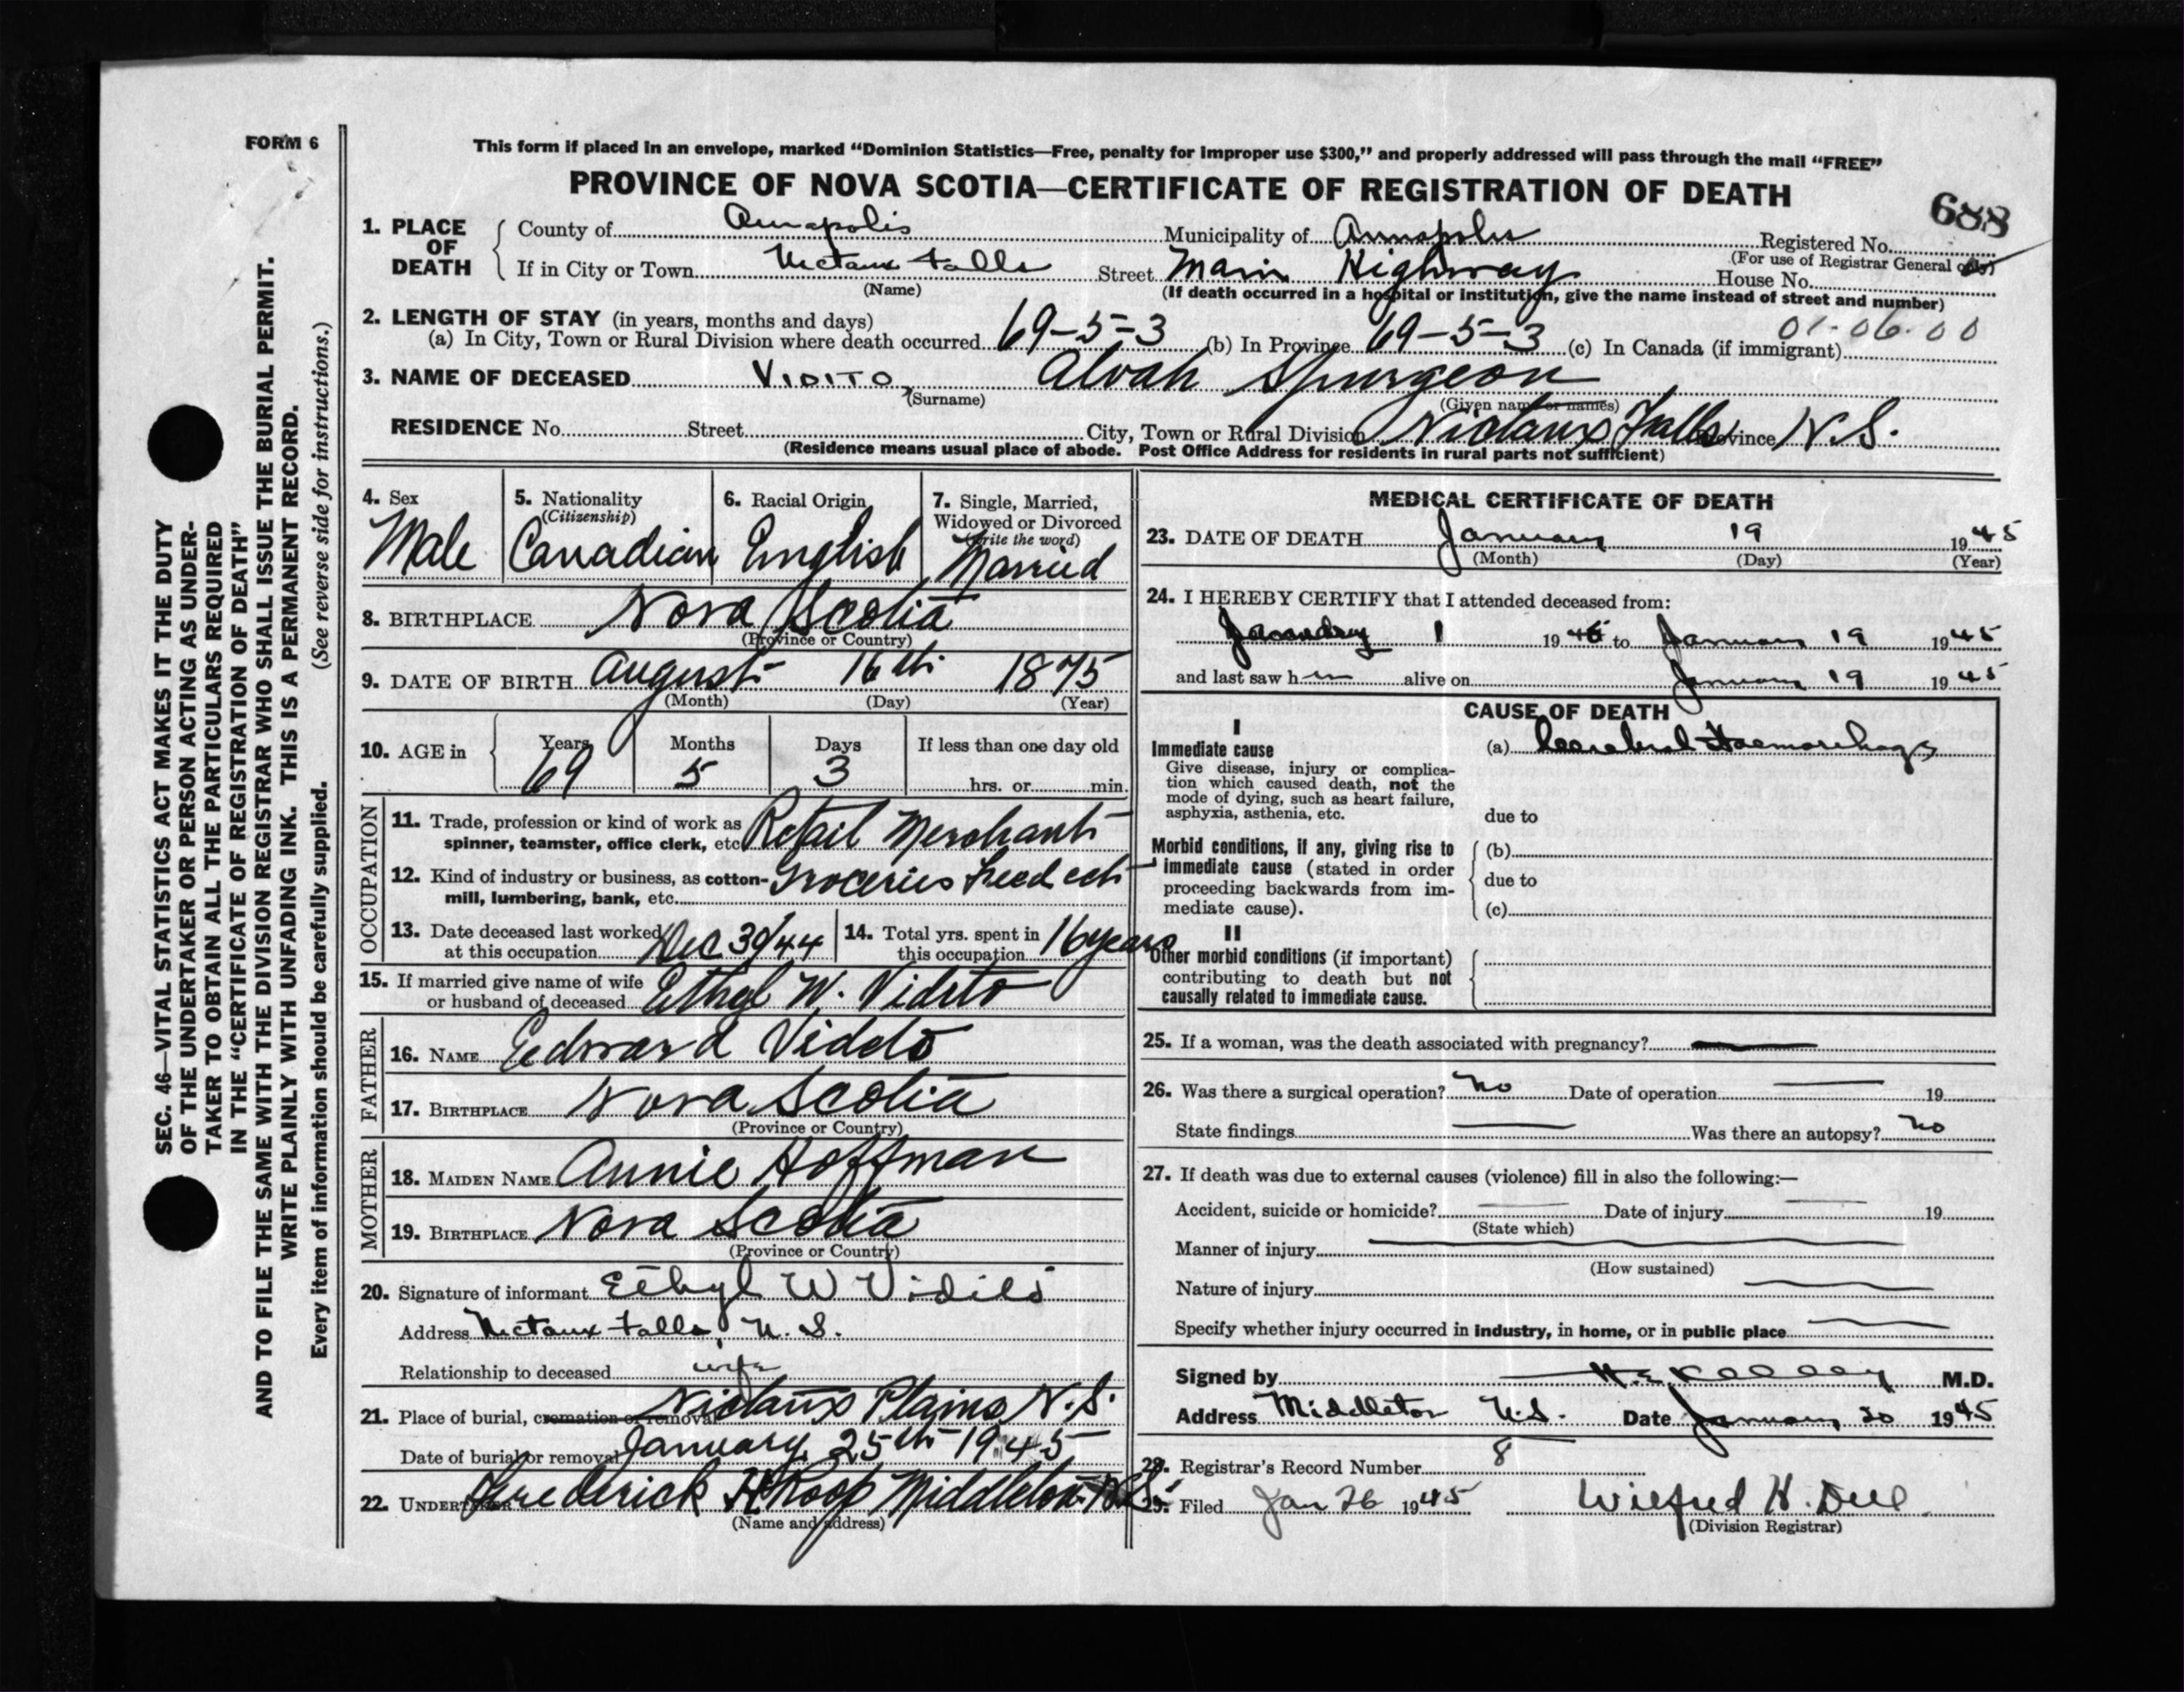 FORM 6
This form if placed in an envelope, marked “Dominion Statistics—Free, penalty for improper use $300,” and properly addressed will pass through the mail “FREE”
PROVINCE OF NOVA SCOTIA—CERTIFICATE OF REGISTRATION OF DEATH
688
1. PLACE OF DEATH
County of Annapolis Municipality of Annapolis Registered No.
(For use of Registrar General only)
If in City or Town Nictaux Falls Street Main Highway House No.
(Name) (If death occurred in a hospital or institution, give the name instead of street and number)
2. LENGTH OF STAY (in years, months and days)
01-06-00
(a) In City, Town or Rural Division where death occurred 69-5-3 (b) In Province 69-5-3 (c) In Canada (if immigrant)
3. NAME OF DECEASED VIDITO, Alvah Spurgeon
(Surname) (Given name or names)
RESIDENCE No. Street City, Town or Rural Division Nictaux Falls Province N.S.
(Residence means usual place of abode. Post Office Address for residents in rural parts not sufficient)
4. Sex
Male
5. Nationality
(Citizenship)
Canadian
6. Racial Origin
English
7. Single, Married,
Widowed or Divorced
(Write the word)
Married
8. BIRTHPLACE Nova Scotia
(Province or Country)
9. DATE OF BIRTH August 16th 1875
(Month) (Day) (Year)
10. AGE in Years Months Days If less than one day old
69 5 3 hrs. or min.
OCCUPATION
11. Trade, profession or kind of work as
spinner, teamster, office clerk, etc. Retail Merchant
12. Kind of industry or business, as cotton- Groceries Feed ect
mill, lumbering, bank, etc.
13. Date deceased last worked
at this occupation Dec 30/44
14. Total yrs. spent in
this occupation 16 years
15. If married give name of wife
or husband of deceased Ethyl W. Vidito
FATHER
16. NAME Edward Vidito
17. BIRTHPLACE Nova Scotia
(Province or Country)
MOTHER
18. MAIDEN NAME Annie Hoffman
19. BIRTHPLACE Nova Scotia
(Province or Country)
20. Signature of informant Ethyl W Vidito
Address Nictaux Falls, N. S.
Relationship to deceased wife
21. Place of burial, cremation or removal Nictaux Plains N.S.
Date of burial or removal January 25th 1945
22. UNDERTAKER Frederick H Roop Middleton N.S.
(Name and address)
MEDICAL CERTIFICATE OF DEATH
23. DATE OF DEATH January 19 1945
(Month) (Day) (Year)
24. I HEREBY CERTIFY that I attended deceased from:
January 1 1945 to January 19 1945
and last saw him alive on January 19 1945
CAUSE OF DEATH
I
Immediate cause
Give disease, injury or complica-
tion which caused death, not the
mode of dying, such as heart failure,
asphyxia, asthenia, etc.
(a) Cerebral Haemorrhage
due to
Morbid conditions, if any, giving rise to
immediate cause (stated in order
proceeding backwards from im-
mediate cause).
(b)
due to
(c)
II
Other morbid conditions (if important)
contributing to death but not
causally related to immediate cause.
25. If a woman, was the death associated with pregnancy?
26. Was there a surgical operation? No Date of operation 19
State findings Was there an autopsy? No
27. If death was due to external causes (violence) fill in also the following:—
Accident, suicide or homicide? Date of injury 19
(State which)
Manner of injury
(How sustained)
Nature of injury
Specify whether injury occurred in industry, in home, or in public place
Signed by H E Kelley M.D.
Address Middleton N.S. Date January 20 1945
28. Registrar's Record Number 8
29. Filed Jan 26 1945 Wilfred H. Deel
(Division Registrar)
SEC. 46—VITAL STATISTICS ACT MAKES IT THE DUTY
OF THE UNDERTAKER OR PERSON ACTING AS UNDER-
TAKER TO OBTAIN ALL THE PARTICULARS REQUIRED
IN THE “CERTIFICATE OF REGISTRATION OF DEATH”
AND TO FILE THE SAME WITH THE DIVISION REGISTRAR WHO SHALL ISSUE THE BURIAL PERMIT.
WRITE PLAINLY WITH UNFADING INK. THIS IS A PERMANENT RECORD.
Every item of information should be carefully supplied. (See reverse side for instructions.)